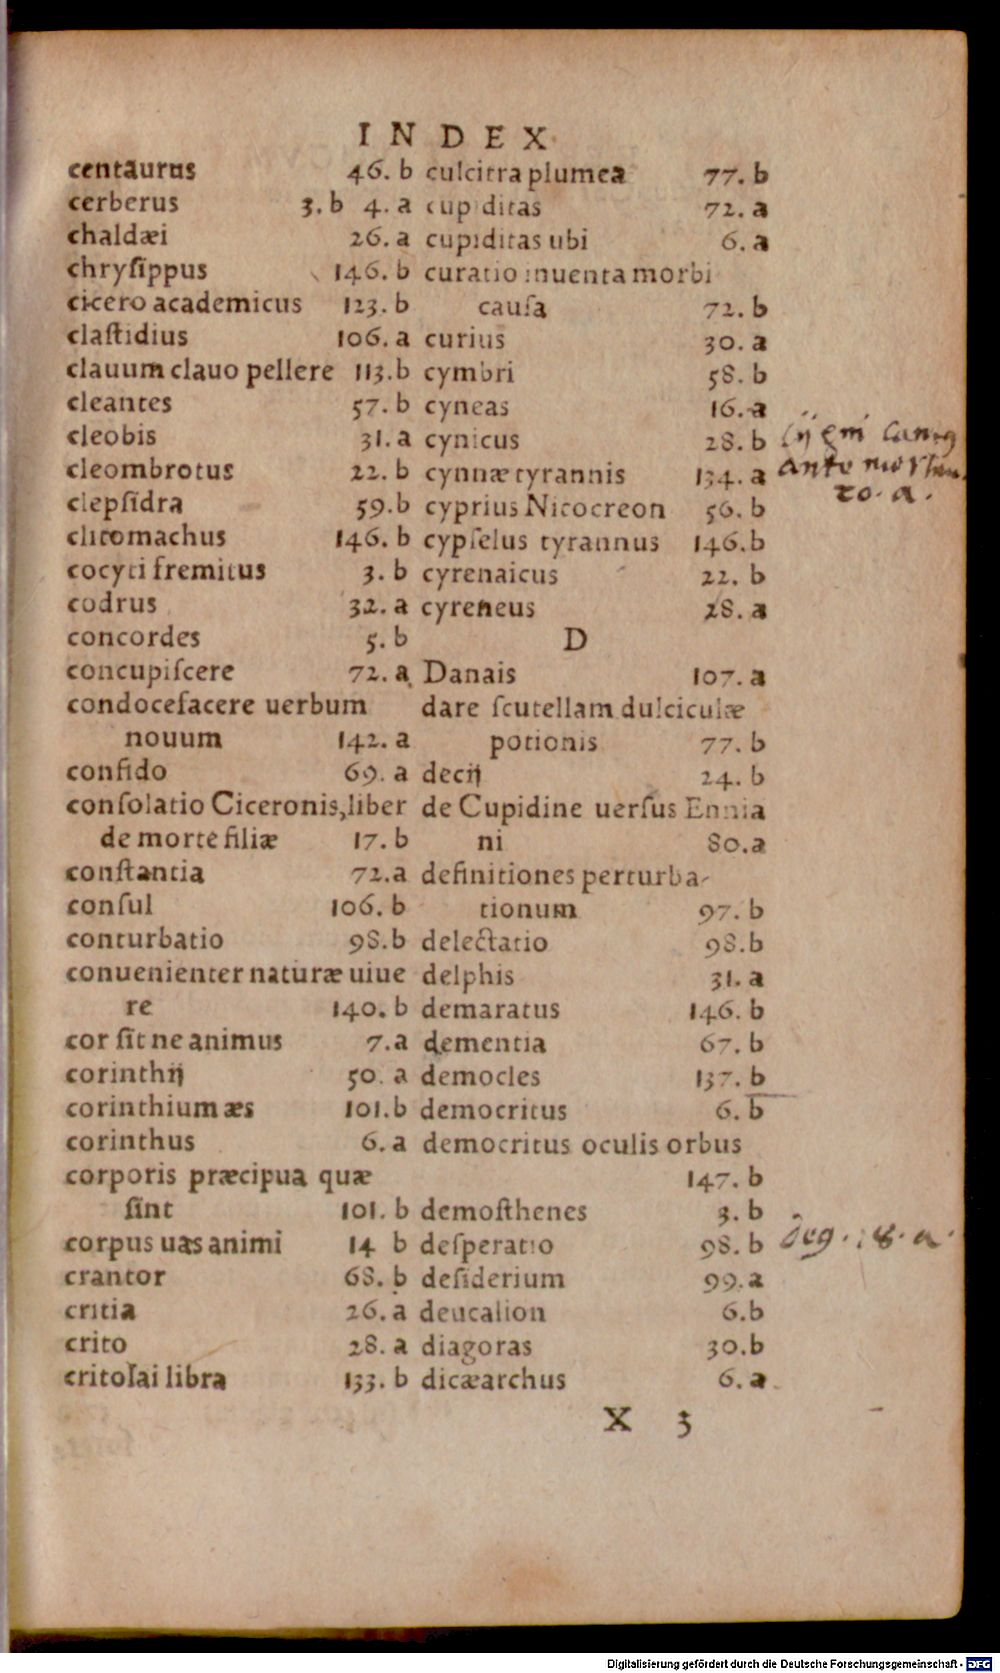 INDEX
centaurus 46. b
cerberus 3. b 4. a
chaldæi 26. a
chryſippus 146. b
cicero academicus 123. b
claſtidius 106. a
clauum clauo pellere 113. b
cleantes 57. b
cleobis 31. a
cleombrotus 22. b
clepſidra 59. b
clitomachus 146. b
cocyti fremitus 3. b
codrus 32. a
concordes 5. b
concupiſcere 72. a
condocefacere uerbum
nouum 142. a
confido 69. a
conſolatio Ciceronis, liber
de morte filiæ 17. b
conſtantia 72. a
conſul 106. b
conturbatio 98. b
conuenienter naturæ uiue
re 140. b
cor ſit ne animus 7. a
corinthij 50. a
corinthium æs 101. b
corinthus 6. a
corporis præcipua quæ
ſint 101. b
corpus uas animi 14 b
crantor 68. b
critia 26. a
crito 28. a
critolai libra 133. b
culcitra plumea 77. b
cupiditas 72. a
cupiditas ubi 6. a
curatio inuenta morbi
cauſa 72. b
curius 30. a
cymbri 58. b
cyneas 16. a
cynicus 28. b
cynnæ tyrannis 134. a
cyprius Nicocreon 56. b
cypſelus tyrannus 146. b
cyrenaicus 22. b
cyreneus 28. a
D
Danais 107. a
dare ſcutellam dulciculæ
potionis 77. b
decij 24. b
de Cupidine uerſus Ennia
ni 80. a
definitiones perturba-
tionum 97. b
delectatio 98. b
delphis 31. a
demaratus 146. b
dementia 67. b
democles 137. b
democritus 6. b
democritus oculis orbus
147. b
demoſthenes 3. b
deſperatio 98. b
deſiderium 99. a
deucalion 6. b
diagoras 30. b
dicæarchus 6. a
X 3
ante
20. a.
Digitalisierung gefördert durch die Deutsche Forschungsgemeinschaft - DFG